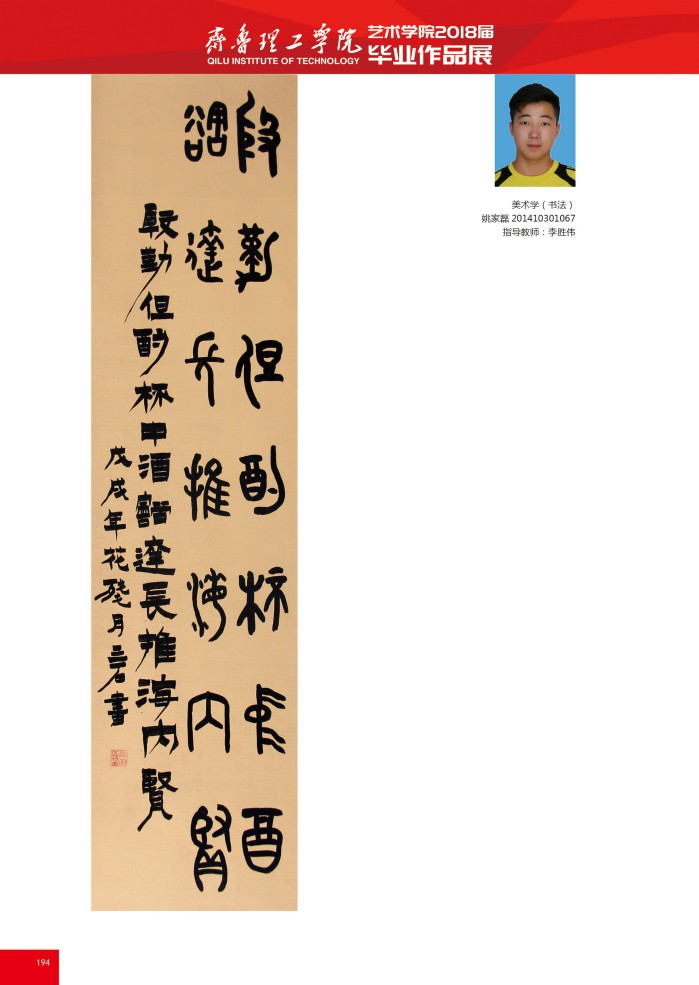 齊魯理工學院
QILU INSTITUTE OF TECHNOLOGY
艺术学院2018届
毕业作品展
美术学（书法）
姚家磊 201410301067
指导教师：李胜伟
殷勤但酌杯中酉
豁達長推海内賢
殷勤但酌杯中酒豁達長推海内賢
戊戌年花殘月三石書
194